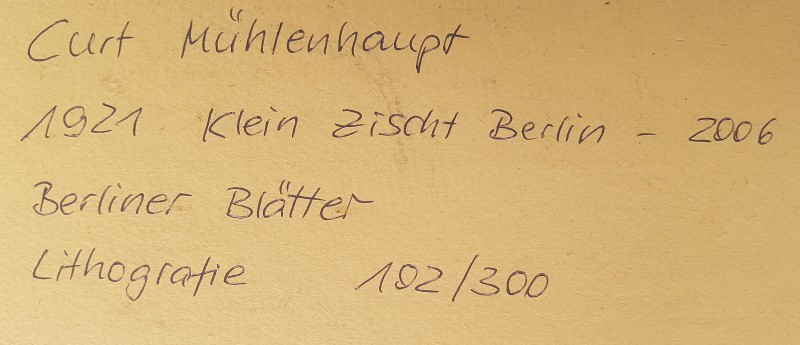 Curt Mühlenhaupt
1921 Klein Zischt Berlin - 2006
Berliner Blätter
Lithografie 192/300